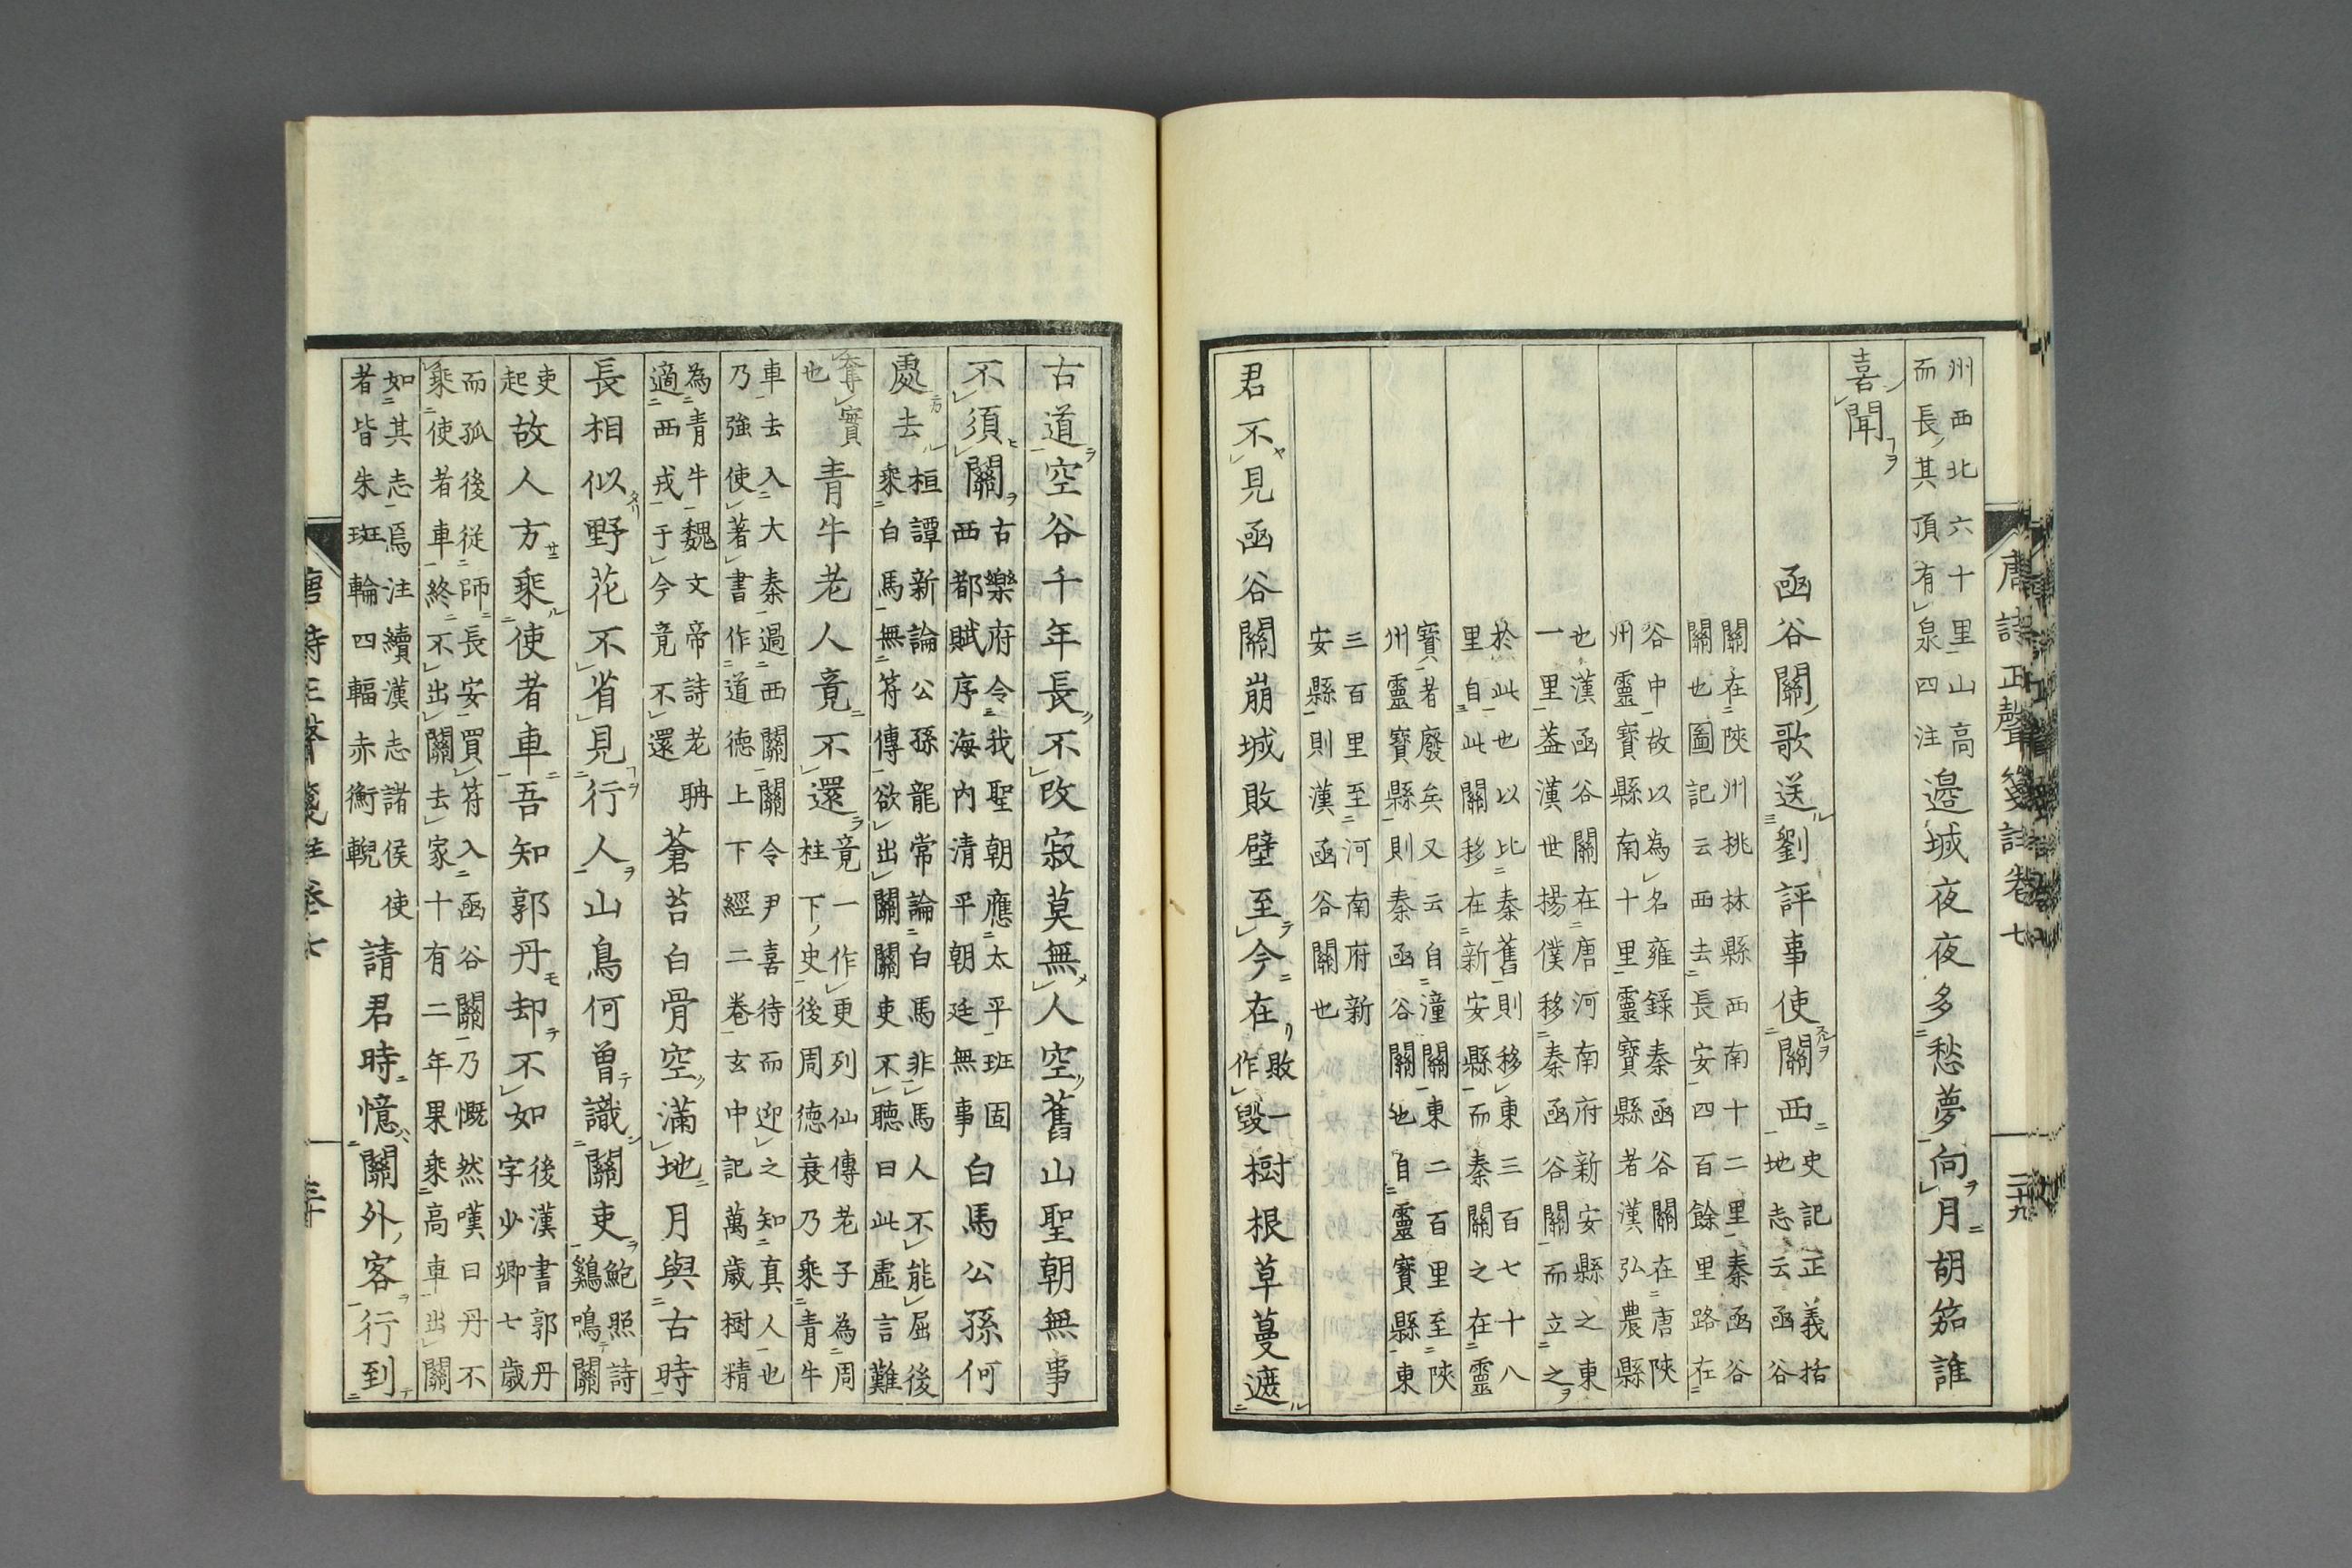 唐詩正聲箋註卷七 二十九
州西北六十里山高
而長其頂有泉四注
邉城夜夜多愁夢向月胡笳誰
喜聞
函谷關歌送劉評事使關西
史記正義括
地志云函谷
關在陝州挑林縣西南十二里秦函谷
關也圖記云西去長安四百餘里路在
谷中故以為名雍錄秦函谷關在唐陝
州靈寶縣南十里靈寶縣者漢弘農縣
也漢函谷關在唐河南府新安縣之東
一里葢漢世揚僕移秦函谷關而立之
於此也以比秦舊則移東三百七十八
里自此關移在新安縣而秦關之在靈
寶者廢矣又云自潼關東二百里至陝
州靈寶縣則秦函谷關也自靈寶縣東
三百里至河南府新
安縣則漢函谷關也
君不見函谷關崩城敗壁至今在
敗一
作毀
樹根草蔓遮
古道空谷千年長不改寂莫無人空舊山聖朝無事
不須關
古樂府令我聖朝應太平班固
西都賦序海內清平朝廷無事
白馬公孫何
處去
桓譚新論公孫龍常論白馬非馬人不能屈後
乘白馬無符傳欲出關關吏不聽曰此虛言難
奪實
也
青牛老人竟不還
竟一作更列仙傳老子為周
柱下史後周德衰乃乘青牛
車去入大秦過西關關令尹喜待而迎之知真人也
乃強使著書作道德上下經二卷玄中記萬歲樹精
為青牛魏文帝詩老聃
適西戎于今竟不還
蒼苔白骨空滿地月與古時
長相似野花不省見行人山鳥何曾識關吏
鮑照詩
鷄鳴關
吏
起
故人方乘使者車吾知郭丹却不如
後漢書郭丹
字少卿七歲
而孤後從師長安買符入函谷關乃慨然嘆曰丹不
乘使者車終不出關去家十有二年果乘高車出關
如其志焉注續漢志諸侯使
者皆朱班輪四輻赤衡輗
請君時憶關外客行到
唐詩正聲箋註卷七 三十